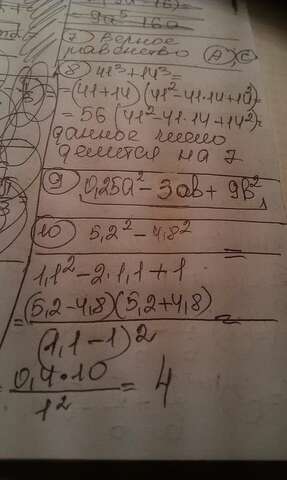 7) верное
равенство А, С
8) 41³ + 14³ =
= (41 + 14)(41² - 41·14 + 14²) =
= 56 (41² - 41·14 + 14²)
данное число
делится на 7
9) 0,25a² - 3ab + 9b²
10) 5,2² - 4,8²
=
1,1² - 2·1,1 + 1
= (5,2 - 4,8)(5,2 + 4,8) =
(1,1 - 1)²
= 0,4·10 = 4
1²